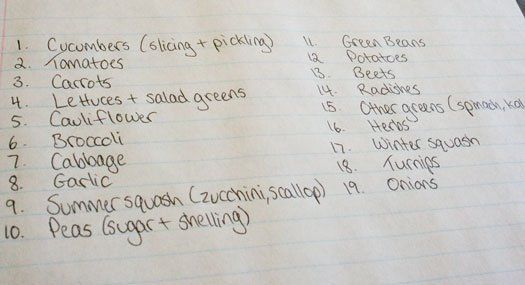 1. Cucumbers (slicing + pickling)
2. Tomatoes
3. Carrots
4. Lettuces + salad greens
5. Cauliflower
6. Broccoli
7. Cabbage
8. Garlic
9. Summer squash (zucchini, scallop)
10. Peas (sugar + shelling)
11. Green Beans
12. Potatoes
13. Beets
14. Radishes
15. Other greens (spinach,
16. Herbs
17. Winter squash
18. Turnips
19. Onions